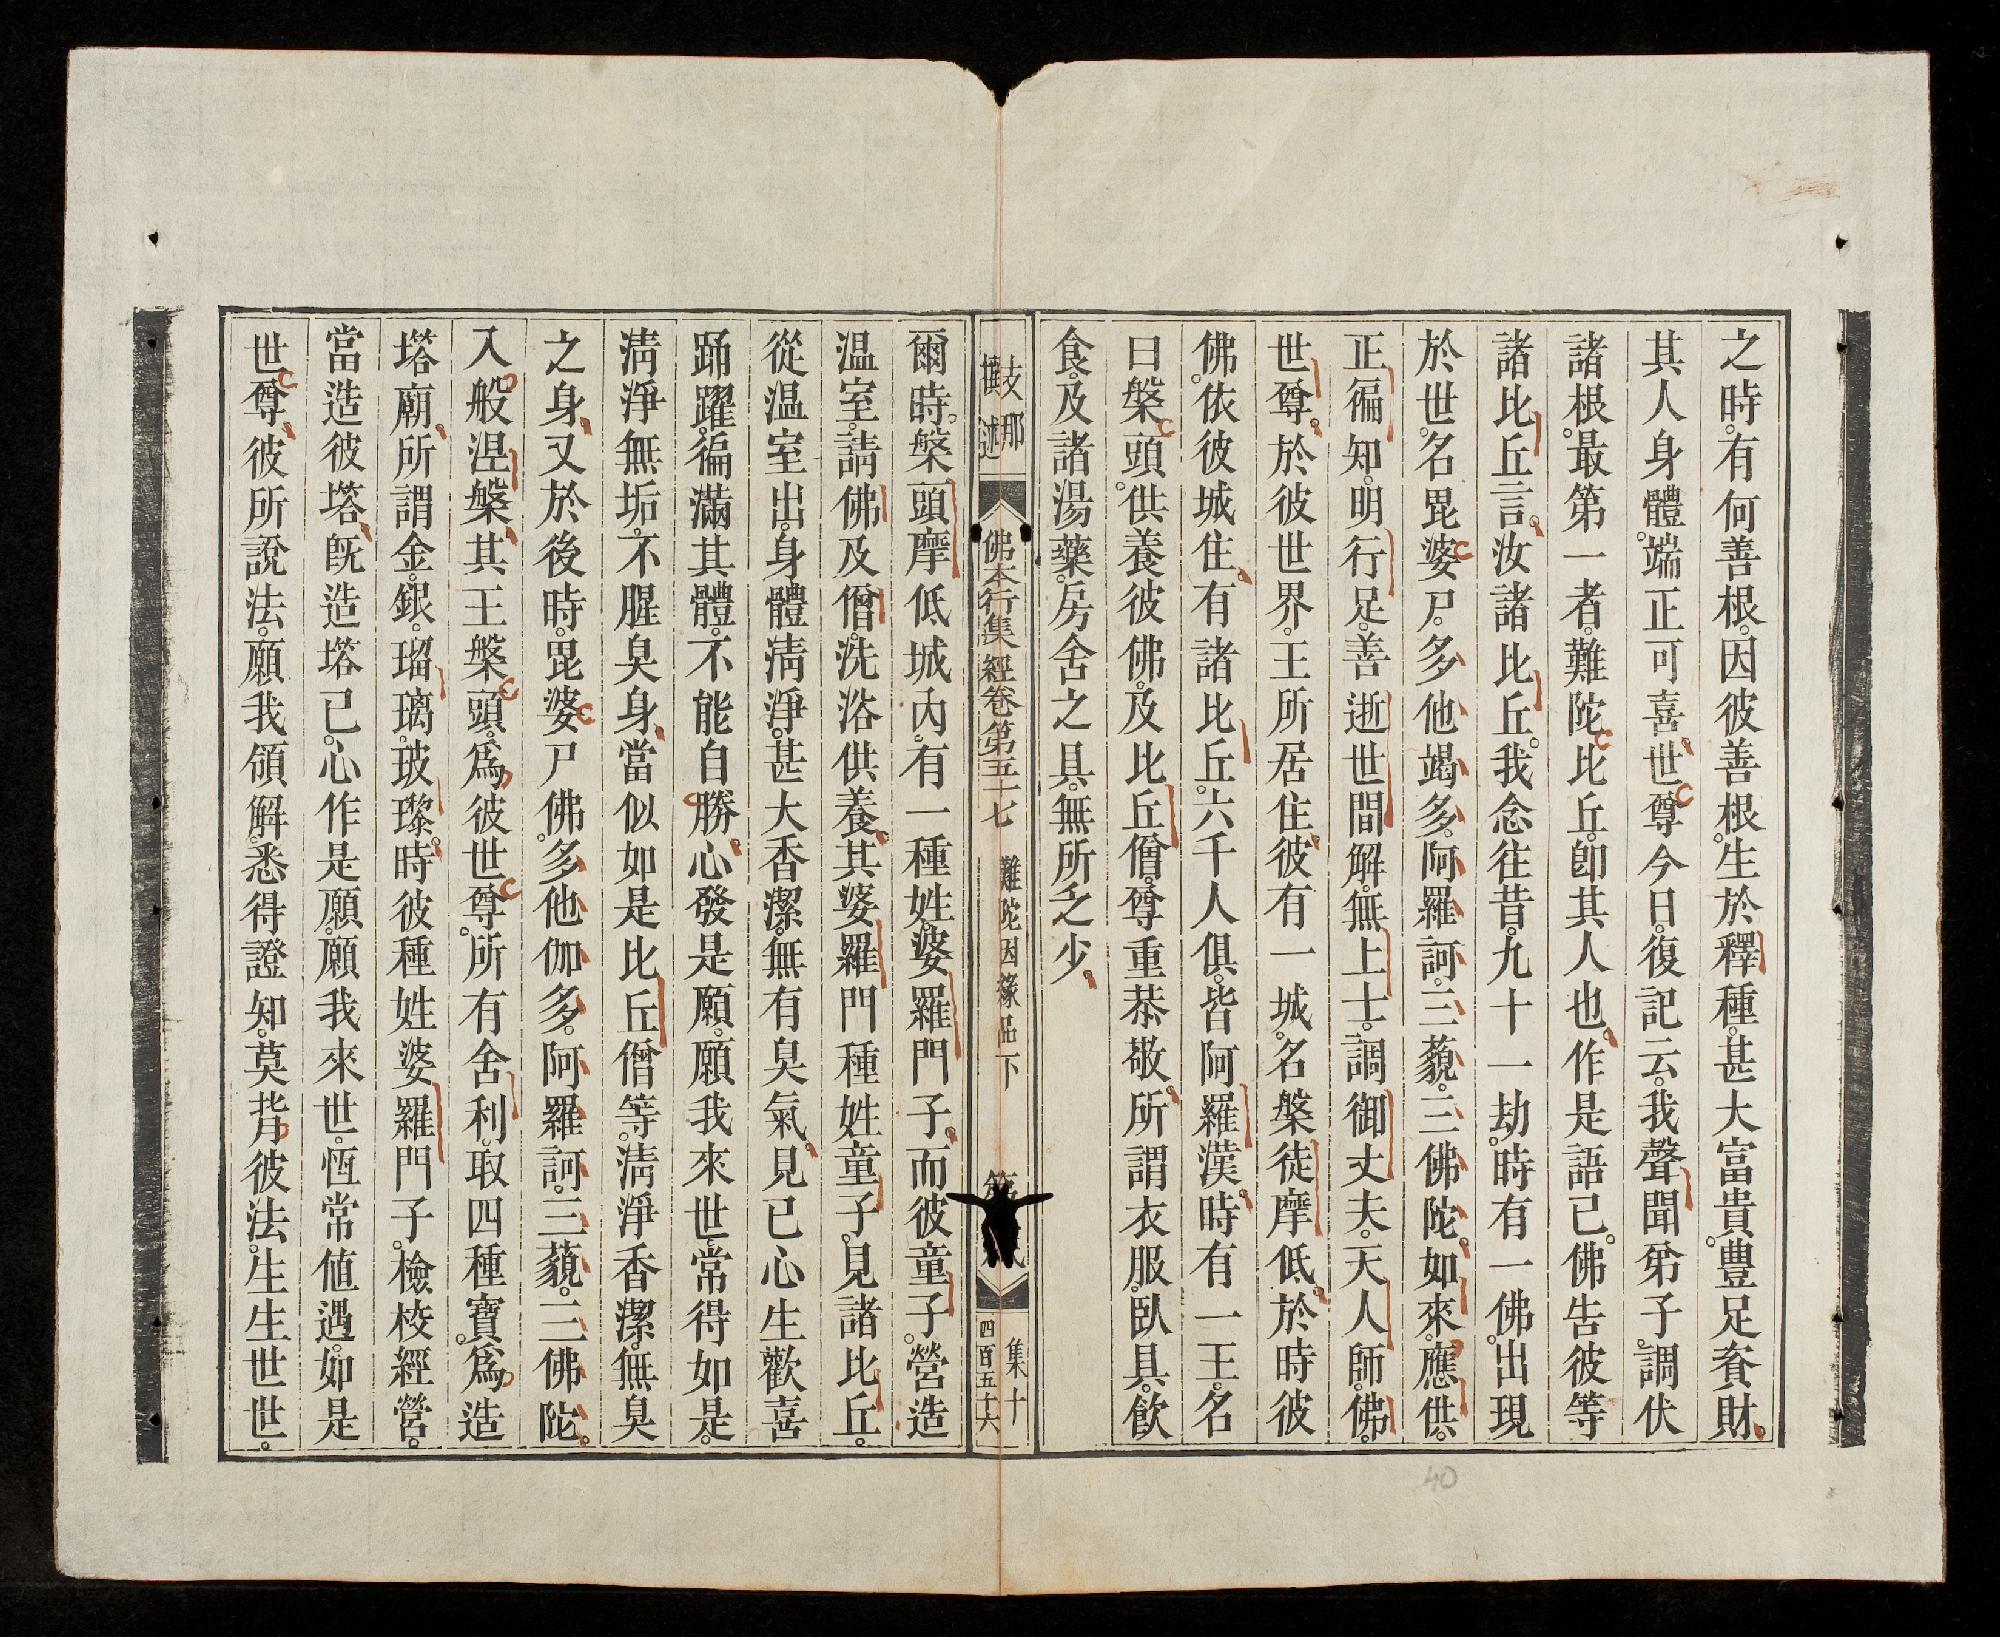 之時。有何善根。因彼善根。生於釋種。甚大富貴。豊足資財。
其人身體。端正可喜。世尊今日。復記云。我聲聞弟子。調伏
諸根。最第一者。難陀比丘。卽其人也。作是語已。佛告彼等
諸比丘言。汝諸比丘。我念往昔。九十一劫。時有一佛。出現
於世。名毘婆尸。多他竭多。阿羅訶。三藐。三佛陀。如來。應供。
正徧知。明行足。善逝世間解。無上士。調御丈夫。天人師。佛。
世尊。於彼世界。王所居住。彼有一城。名槃徒摩低。於時彼
佛。依彼城住。有諸比丘。六千人俱。皆阿羅漢。時有一王。名
曰槃頭。供養彼佛。及比丘僧。尊重恭敬。所謂衣服。臥具。飲
食。及諸湯藥。房舍之具。無所乏少。
支那
撰述
佛本行集經卷第五十七 難陀因緣品下
集十
四百五十六
爾時。槃頭摩低城內。有一種姓。婆羅門子。而彼童子。營造
温室。請佛及僧。洗浴供養。其婆羅門種姓童子。見諸比丘。
從温室出。身體淸淨。甚大香潔。無有臭氣。見已心生歡喜
踊躍。徧滿其體。不能自勝。心發是願。願我來世。常得如是。
淸淨無垢。不腥臭身。當似如是比丘僧等。淸淨香潔。無臭
之身。又於後時。毘婆尸佛。多他伽多。阿羅訶。三藐。三佛陀。
入般涅槃。其王槃頭。爲彼世尊。所有舍利。取四種寶。爲造
塔廟。所謂金。銀。瑠璃。玻瓈。時彼種姓婆羅門子。檢校經營。
當造彼塔。旣造塔已。心作是願。願我來世。恆常値遇。如是
世尊。彼所說法。願我領解。悉得證知。莫背彼法。生生世世。
40